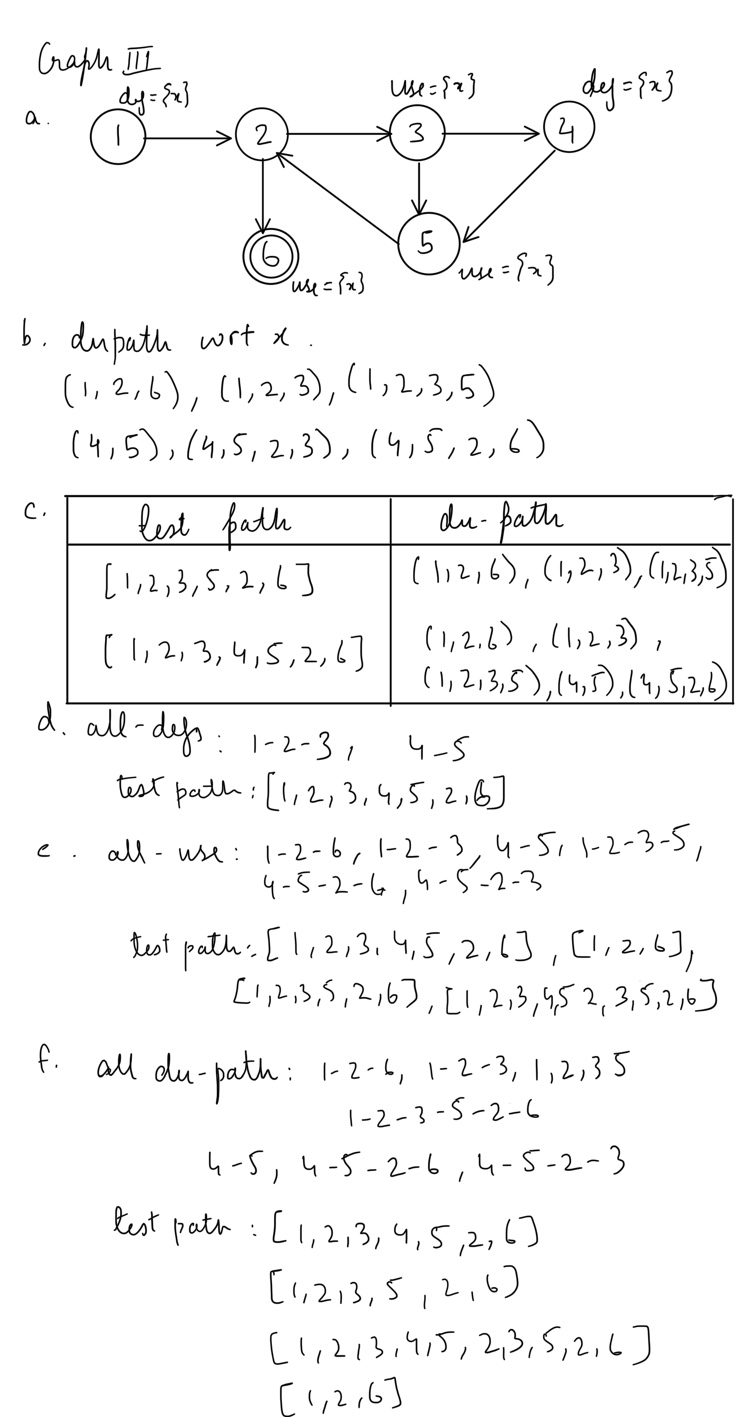 Graph III
a.
def={x}
use={x}
def={x}
1
2
3
4
6
5
use={x}
use={x}
b. dupath wrt x.
(1, 2, 6), (1, 2, 3), (1, 2, 3, 5)
(4, 5), (4, 5, 2, 3), (4, 5, 2, 6)
c.
test path
du-path
[1, 2, 3, 5, 2, 6]
(1, 2, 6), (1, 2, 3), (1, 2, 3, 5)
[1, 2, 3, 4, 5, 2, 6]
(1, 2, 6), (1, 2, 3),
(1, 2, 3, 5), (4, 5), (4, 5, 2, 6)
d. all-defs: 1-2-3, 4-5
test path: [1, 2, 3, 4, 5, 2, 6]
e. all-use: 1-2-6, 1-2-3, 4-5, 1-2-3-5,
4-5-2-6, 4-5-2-3
test path: [1, 2, 3, 4, 5, 2, 6], [1, 2, 6],
[1, 2, 3, 5, 2, 6], [1, 2, 3, 4, 5 2, 3, 5, 2, 6]
f. all du-path: 1-2-6, 1-2-3, 1, 2, 3 5
1-2-3-5-2-6
4-5, 4-5-2-6, 4-5-2-3
test path: [1, 2, 3, 4, 5, 2, 6]
[1, 2, 3, 5, 2, 6)
[1, 2, 3, 4, 5, 2, 3, 5, 2, 6]
[1, 2, 6]